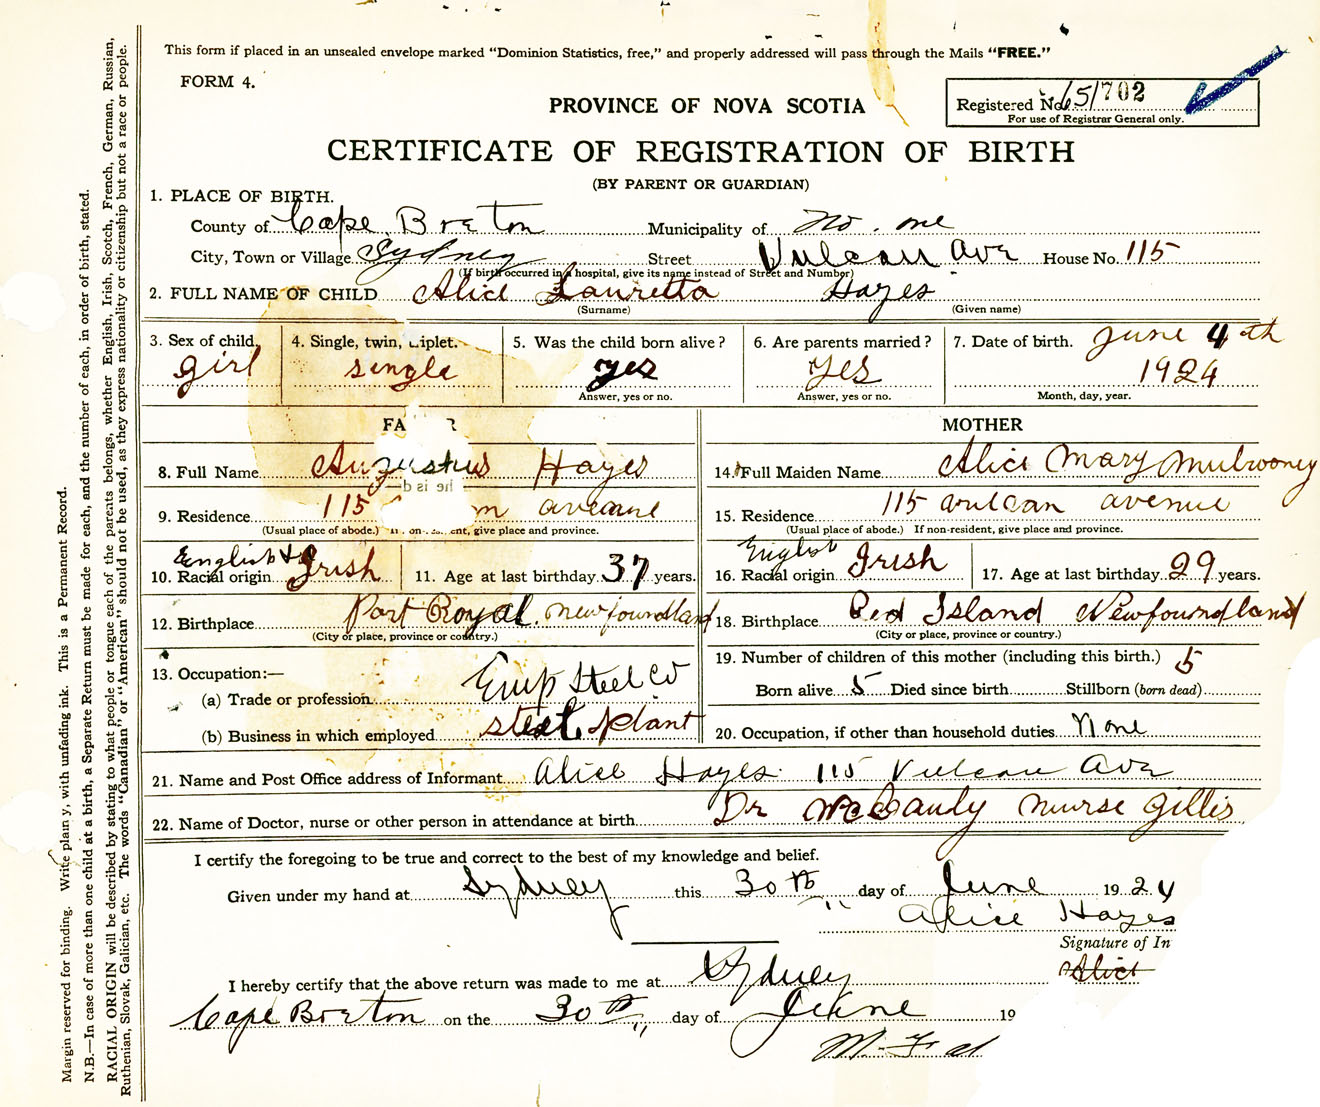 This form if placed in an unsealed envelope marked "Dominion Statistics, free," and properly addressed will pass through the Mails "FREE."
FORM 4.
Registered No. 651702
For use of Registrar General only.
PROVINCE OF NOVA SCOTIA
CERTIFICATE OF REGISTRATION OF BIRTH
(BY PARENT OR GUARDIAN)
1. PLACE OF BIRTH.
County of Cape Breton Municipality of No. one
City, Town or Village Sydney Street Vulcan Ave House No. 115
(If birth occurred in a hospital, give its name instead of Street and Number)
2. FULL NAME OF CHILD Alice Lauretta Hayes
(Surname) (Given name)
3. Sex of child. 4. Single, twin, iplet. 5. Was the child born alive? 6. Are parents married? 7. Date of birth. June 4th
girl single yes yes 1924
Answer, yes or no. Answer, yes or no. Month, day, year.
FA R MOTHER
8. Full Name Augustus Hayes 14. Full Maiden Name Alice Mary Mulrooney
9. Residence 115 n aveane 15. Residence 115 vulcan avenue
(Usual place of abode.) If non- ent, give place and province. (Usual place of abode.) If non-resident, give place and province.
English & English
10. Racial origin Irish 11. Age at last birthday 37 years. 16. Racial origin Irish 17. Age at last birthday 29 years.
12. Birthplace Port Royal. Newfoundland 18. Birthplace Red Island Newfoundland
(City or place, province or country.) (City or place, province or country.)
13. Occupation:— 19. Number of children of this mother (including this birth.) 5
(a) Trade or profession Emp Steel Co Born alive 5 Died since birth Stillborn (born dead)
(b) Business in which employed steel plant 20. Occupation, if other than household duties None
21. Name and Post Office address of Informant Alice Hayes 115 Vulcan Ave
22. Name of Doctor, nurse or other person in attendance at birth Dr McCaudy nurse Gillis
I certify the foregoing to be true and correct to the best of my knowledge and belief.
Given under my hand at Sydney this 30th day of June 1924
Alice Hayes
Signature of In
Alice
I hereby certify that the above return was made to me at Sydney
Cape Breton on the 30th day of June 19
Margin reserved for binding. Write plain y, with unfading ink. This is a Permanent Record.
N.B.—In case of more than one child at a birth, a Separate Return must be made for each, and the number of each, in order of birth, stated.
RACIAL ORIGIN will be described by stating to what people or tongue each of the parents belongs, whether English, Irish, Scotch, French, German, Russian,
Ruthenian, Slovak, Galician, etc. The words "Canadian" or "American" should not be used, as they express nationality or citizenship but not a race or people.